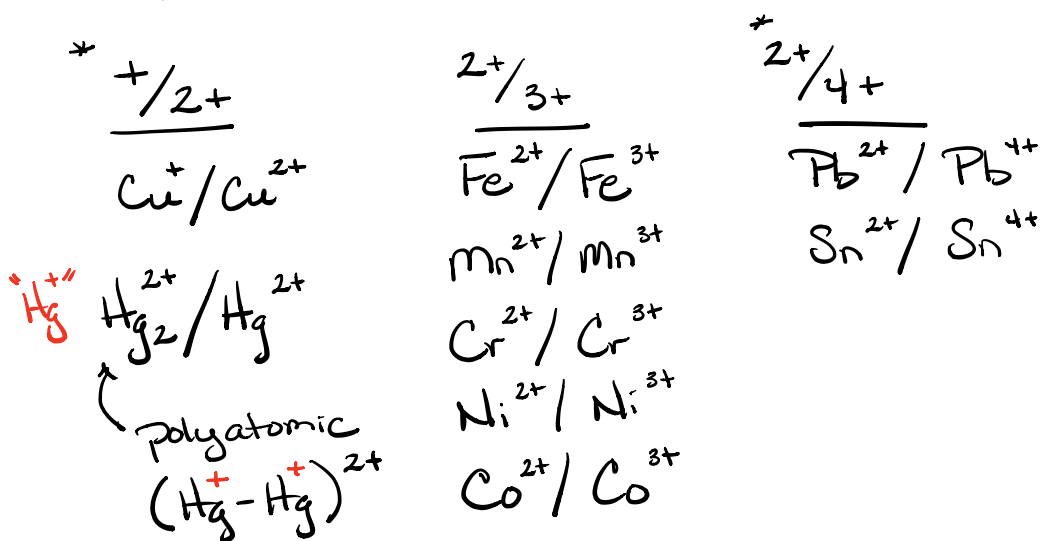 * +/2+
Cu⁺/Cu²⁺
"Hg⁺" Hg₂²⁺/Hg²⁺
polyatomic
(Hg⁺-Hg⁺)²⁺
2+/3+
Fe²⁺/Fe³⁺
Mn²⁺/Mn³⁺
Cr²⁺/Cr³⁺
Ni²⁺/Ni³⁺
Co²⁺/Co³⁺
* 2+/4+
Pb²⁺/Pb⁴⁺
Sn²⁺/Sn⁴⁺